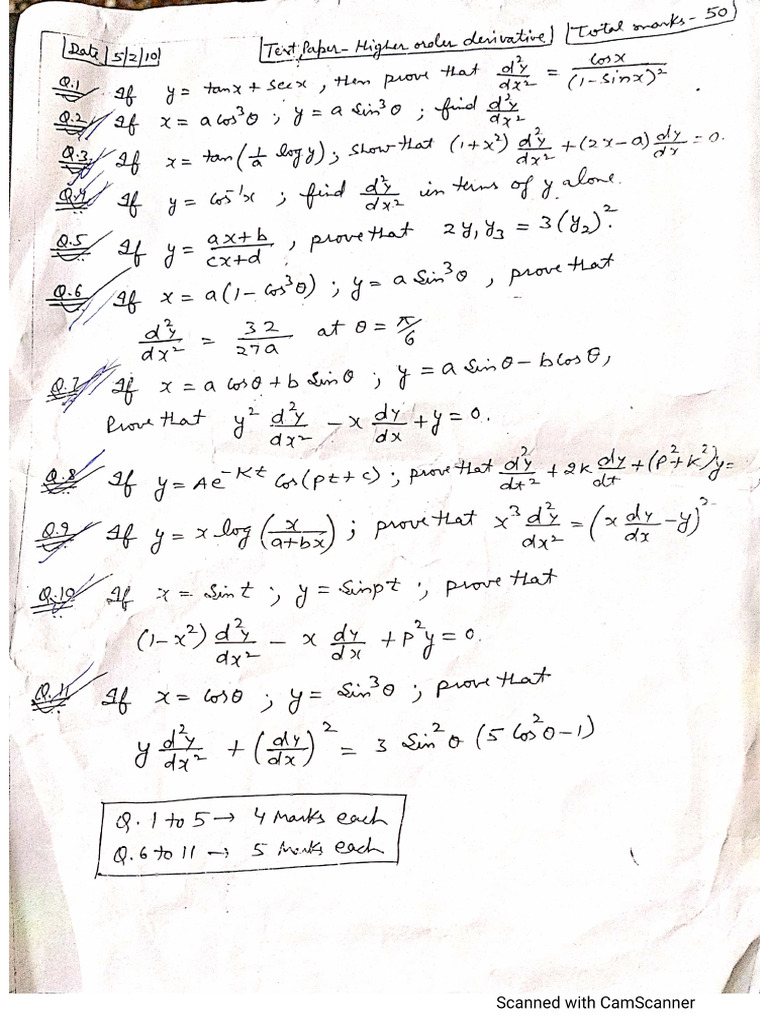 Date | 5/2/10 Test Paper - Higher order derivative Total marks - 50
Q.1 If y = tanx + secx, then prove that d²y/dx² = cosx/(1-sinx)²
Q.2 If x = a cos³θ ; y = a sin³θ ; find d²y/dx²
Q.3 If x = tan(1/a log y) ; show that (1+x²) d²y/dx² + (2x-a) dy/dx = 0.
Q.4 If y = cos⁻¹x ; find d²y/dx² in terms of y alone.
Q.5 If y = (ax+b)/(cx+d) , prove that 2y₁y₃ = 3(y₂)².
Q.6 If x = a(1 - cos³θ) ; y = a sin³θ , prove that
d²y/dx² = 32/27a at θ = π/6
Q.7 If x = a cosθ + b sinθ ; y = a sinθ - b cosθ,
Prove that y² d²y/dx² - x dy/dx + y = 0.
Q.8 If y = Ae^-Kt cos(pt+c) ; prove that d²y/dt² + 2K dy/dt + (p²+K²)y =
Q.9 If y = x log(x/(a+bx)) ; prove that x³ d²y/dx² = (x dy/dx - y)²
Q.10 If x = sint ; y = sinpt ; prove that
(1-x²) d²y/dx² - x dy/dx + p²y = 0.
Q.11 If x = cosθ ; y = sin³θ ; prove that
y d²y/dx² + (dy/dx)² = 3 sin²θ (5 cos²θ - 1)
Q. 1 to 5 → 4 marks each
Q. 6 to 11 → 5 marks each
Scanned with CamScanner